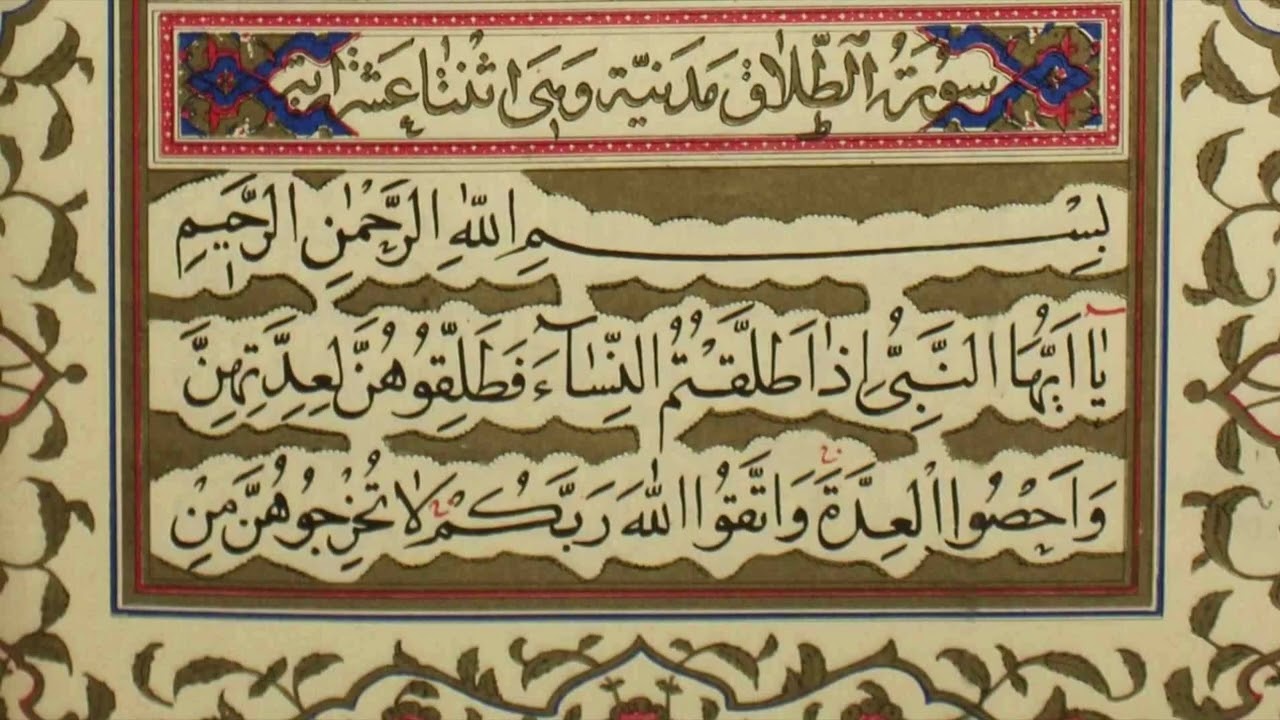 سُورَةُ الطَّلَاقِ مَدَنِيَّةٌ وَهِىَ اثْنَتَا عَشْرَةَ اٰيَةً
بِسْمِ اللّٰهِ الرَّحْمٰنِ الرَّحٖيمِ
يَٓا اَيُّهَا النَّبِىُّ اِذَا طَلَّقْتُمُ النِّسَٓاءَ فَطَلِّقُوهُنَّ لِعِدَّتِهِنَّ
وَاَحْصُوا الْعِدَّةَ وَاتَّقُوا اللّٰهَ رَبَّكُمْ لَا تُخْرِجُوهُنَّ مِنْ